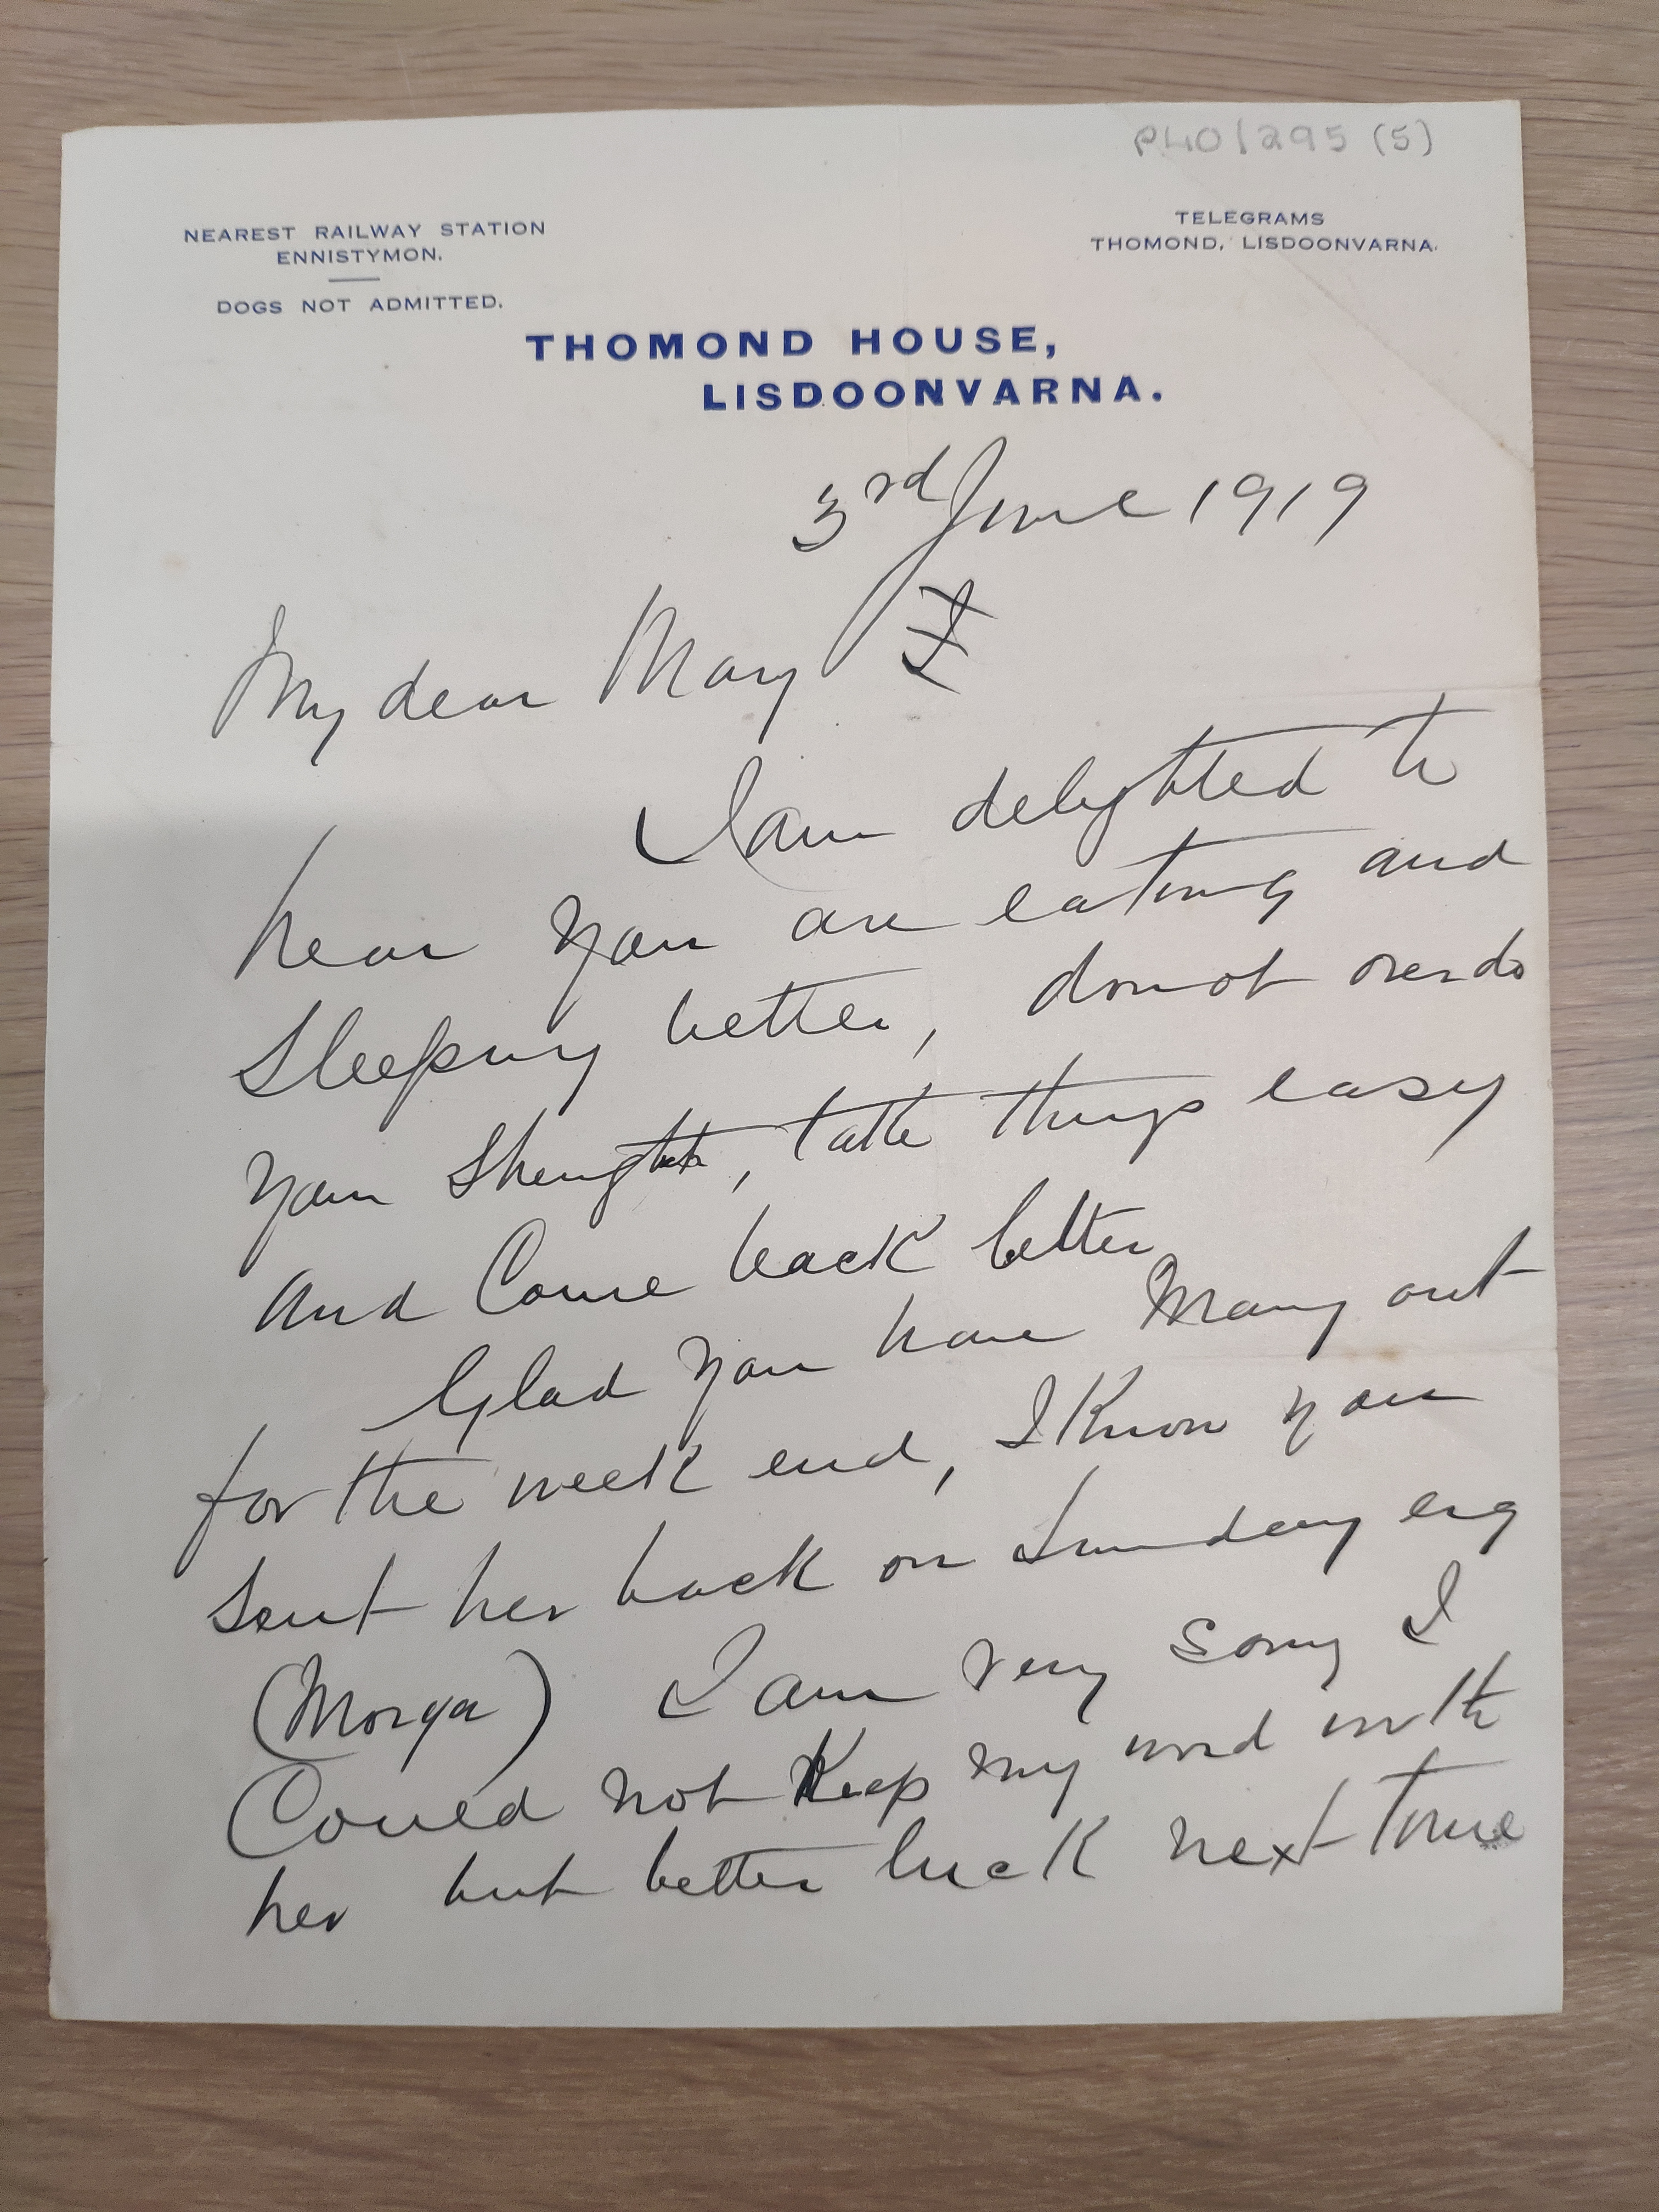 P40/295 (5)
NEAREST RAILWAY STATION
ENNISTYMON.
DOGS NOT ADMITTED.
TELEGRAMS
THOMOND, LISDOONVARNA.
THOMOND HOUSE,
LISDOONVARNA.
3rd June 1919
My dear May
I am delighted to
hear you are eating and
sleeping better, do not overdo
your strength, take things easy
and Come back better
Glad you have Many out
for the week end, I know you
sent her back on Sunday evg
(Morga) I am very sorry I
Could not Keep my word with
her but better luck next time